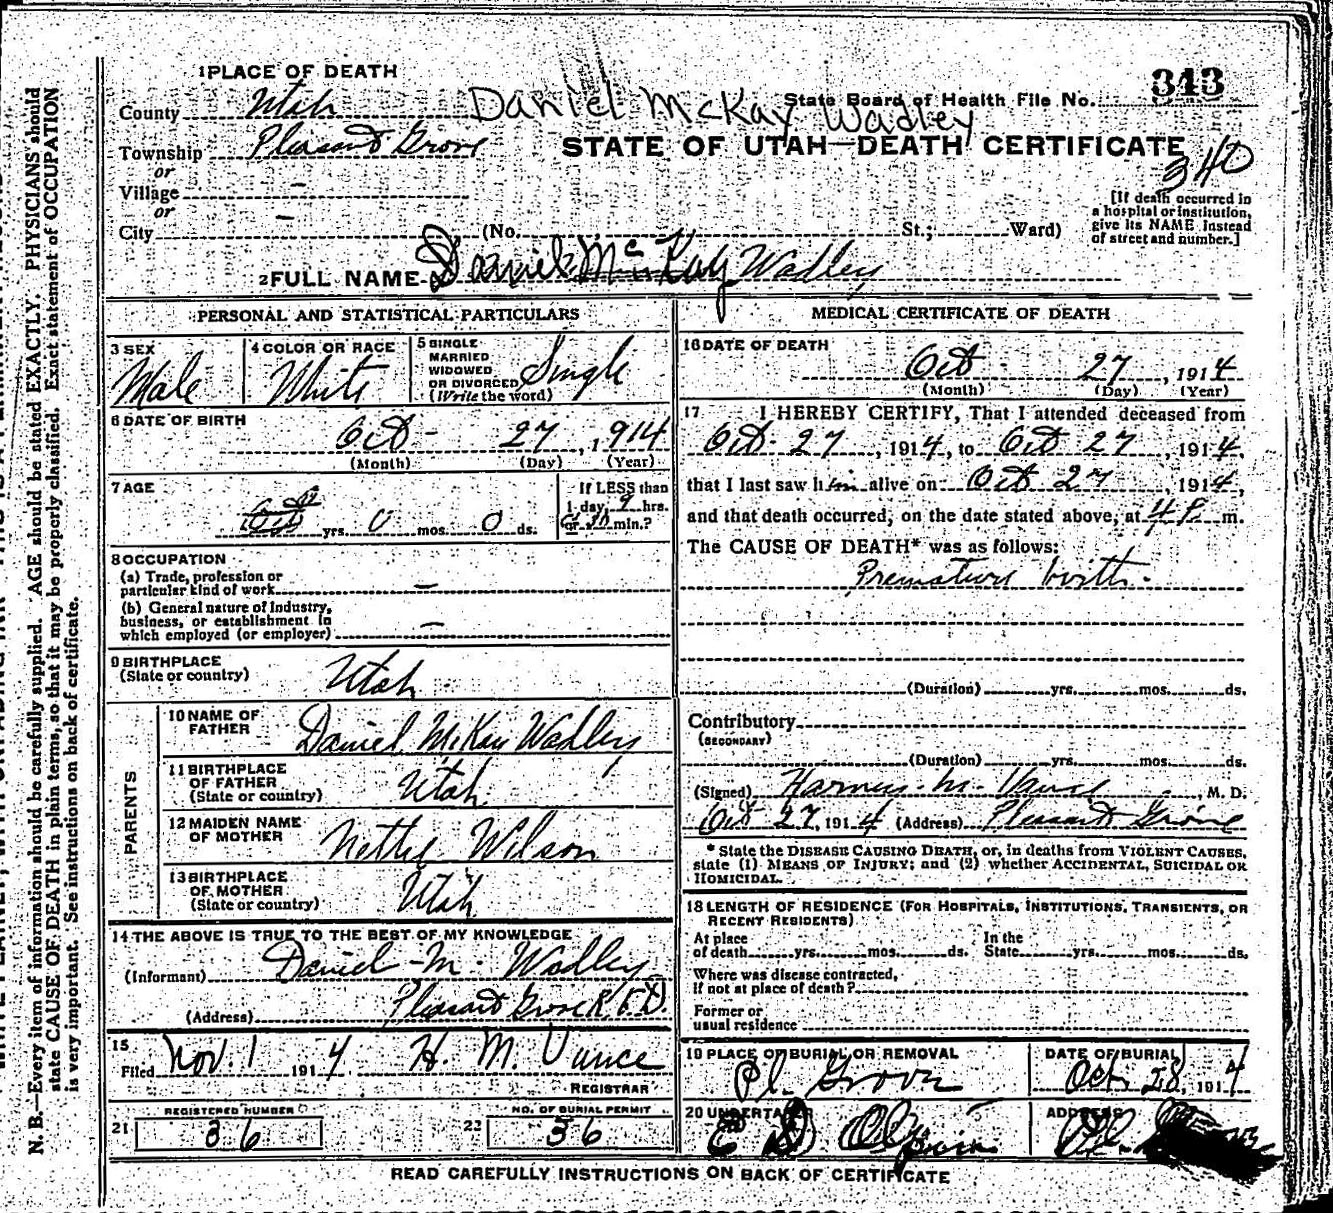 1 PLACE OF DEATH
County Utah
Daniel McKay Wadley
State Board of Health File No. 343
Township Pleasant Grove
STATE OF UTAH—DEATH CERTIFICATE
340
or
Village –
or
City –
(No. St.; Ward)
[If death occurred in
a hospital or institution,
give its NAME instead
of street and number.]
2 FULL NAME Daniel McKay Wadley
PERSONAL AND STATISTICAL PARTICULARS
3 SEX
Male
4 COLOR OR RACE
White
5 SINGLE
MARRIED
WIDOWED
OR DIVORCED
(Write the word)
Single
6 DATE OF BIRTH
Oct - 27, 1914
(Month) (Day) (Year)
7 AGE
yrs. 0 mos. 0 ds.
If LESS than
1 day, 9 hrs.
or min.?
8 OCCUPATION
(a) Trade, profession or
particular kind of work –
(b) General nature of Industry,
business, or establishment in
which employed (or employer) –
9 BIRTHPLACE
(State or country)
Utah
PARENTS
10 NAME OF
FATHER
Daniel McKay Wadley
11 BIRTHPLACE
OF FATHER
(State or country)
Utah
12 MAIDEN NAME
OF MOTHER
Nettie Wilson
13 BIRTHPLACE
OF MOTHER
(State or country)
Utah
14 THE ABOVE IS TRUE TO THE BEST OF MY KNOWLEDGE
(Informant) Daniel M. Wadley
(Address) Pleasant Grove R.F.D.
15
Filed Nov. 1 1914 H. M. Vance
REGISTRAR
REGISTERED NUMBER
21 36
NO. OF BURIAL PERMIT
22 36
MEDICAL CERTIFICATE OF DEATH
16 DATE OF DEATH
Oct 27, 1914
(Month) (Day) (Year)
17 I HEREBY CERTIFY, That I attended deceased from
Oct. 27, 1914, to Oct 27, 1914,
that I last saw him alive on Oct 27 1914,
and that death occurred, on the date stated above, at 4 P. m.
The CAUSE OF DEATH* was as follows:
Premature birth.
(Duration) yrs. mos. ds.
Contributory
(SECONDARY)
(Duration) yrs. mos. ds.
(Signed) M. Vance, M. D.
Oct 27, 1914 (Address) Pleasant Grove
* State the DISEASE CAUSING DEATH, or, in deaths from VIOLENT CAUSES,
state (1) MEANS OF INJURY; and (2) whether ACCIDENTAL, SUICIDAL OR
HOMICIDAL.
18 LENGTH OF RESIDENCE (FOR HOSPITALS, INSTITUTIONS, TRANSIENTS, OR
RECENT RESIDENTS)
At place
of death yrs. mos. ds.
In the
State yrs. mos. ds.
Where was disease contracted,
If not at place of death?
Former or
usual residence
19 PLACE OF BURIAL OR REMOVAL
Pl. Grove
DATE OF BURIAL
Oct. 28, 1914
20 UNDERTAKER
ADDRESS
READ CAREFULLY INSTRUCTIONS ON BACK OF CERTIFICATE
N. B.—Every item of information should be carefully supplied. AGE should be stated EXACTLY. PHYSICIANS should
state CAUSE OF DEATH in plain terms, so that it may be properly classified. Exact statement of OCCUPATION
is very important. See instructions on back of certificate.